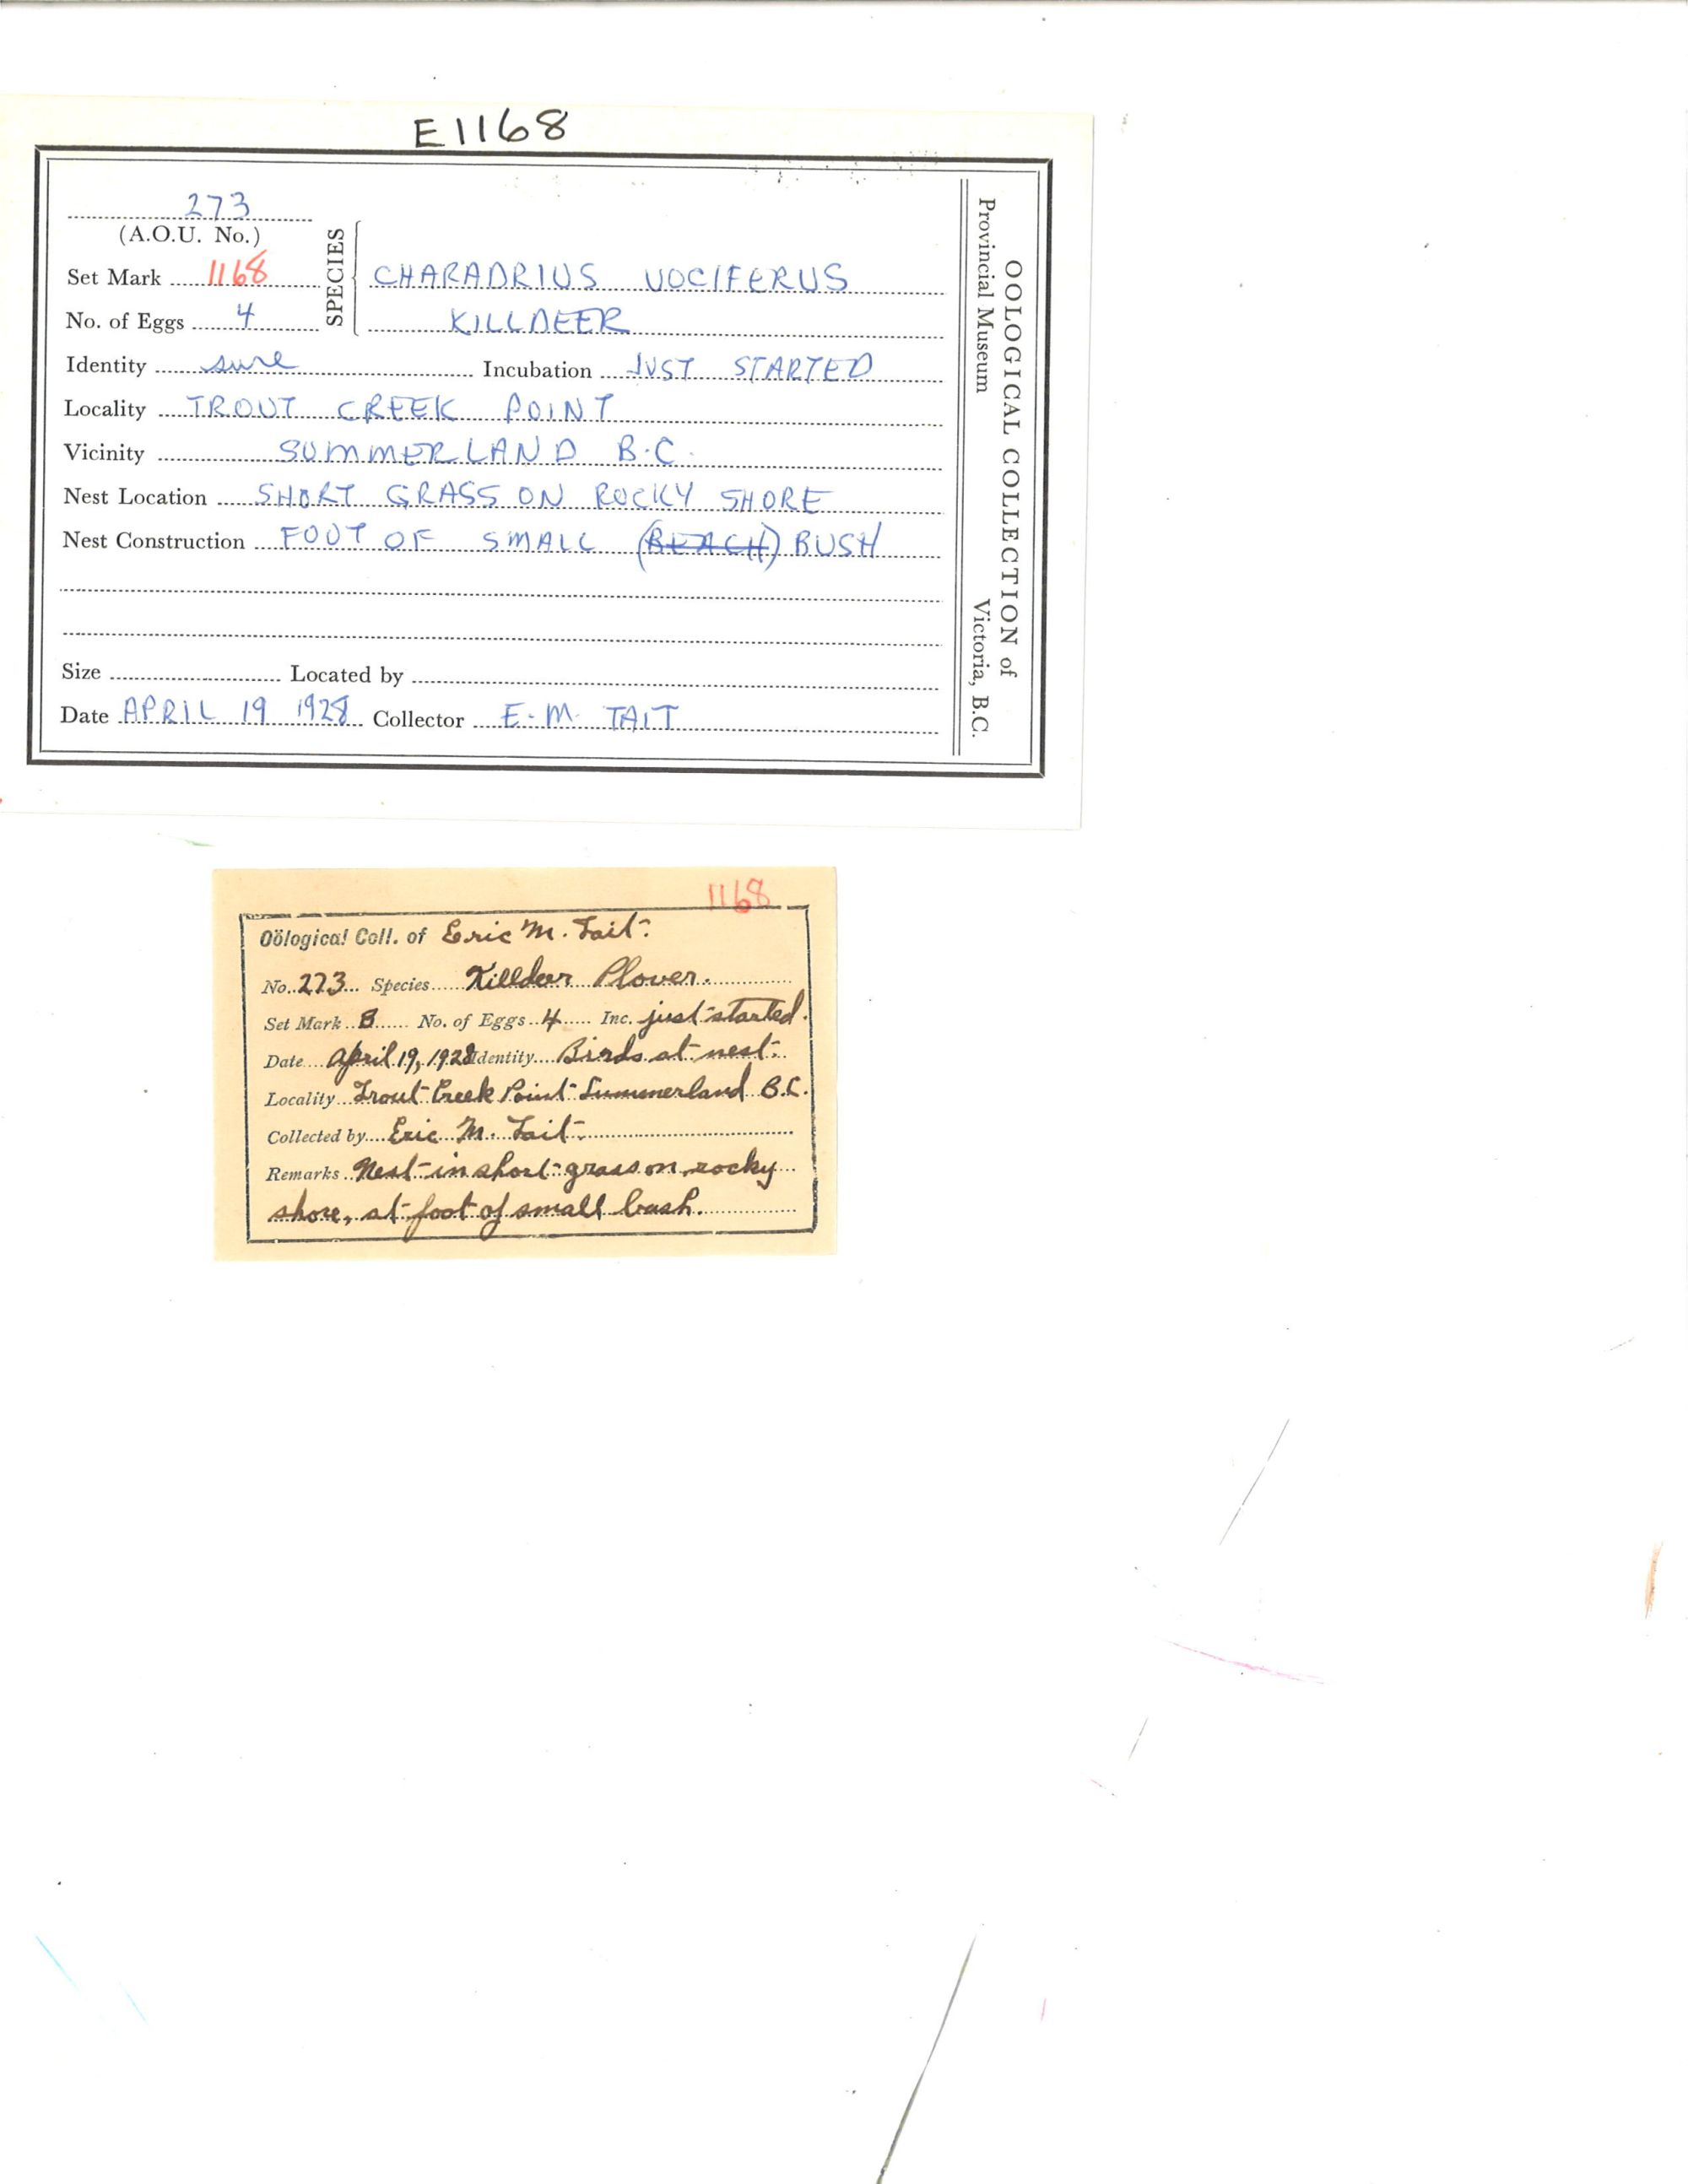 E1168
273
(A.O.U. No.)
Set Mark 1168
No. of Eggs 4
SPECIES
CHARADRIUS VOCIFERUS
KILLDEER
Identity sure Incubation JUST STARTED
Locality TROUT CREEK POINT
Vicinity SUMMERLAND B.C.
Nest Location SHORT GRASS ON ROCKY SHORE
Nest Construction FOOT OF SMALL (BEACH) BUSH
Size Located by
Date APRIL 19 1928 Collector E.M. TAIT
OOLOGICAL COLLECTION of
Provincial Museum Victoria, B.C.
1168
Oölogical Coll. of Eric M. Tait.
No. 273 Species Killdeer Plover.
Set Mark B No. of Eggs 4 Inc. just started.
Date April 19, 1928 Identity Birds at nest.
Locality Trout Creek Point Summerland B.C.
Collected by Eric M. Tait.
Remarks Nest in short grass on rocky
shore, at foot of small bush.